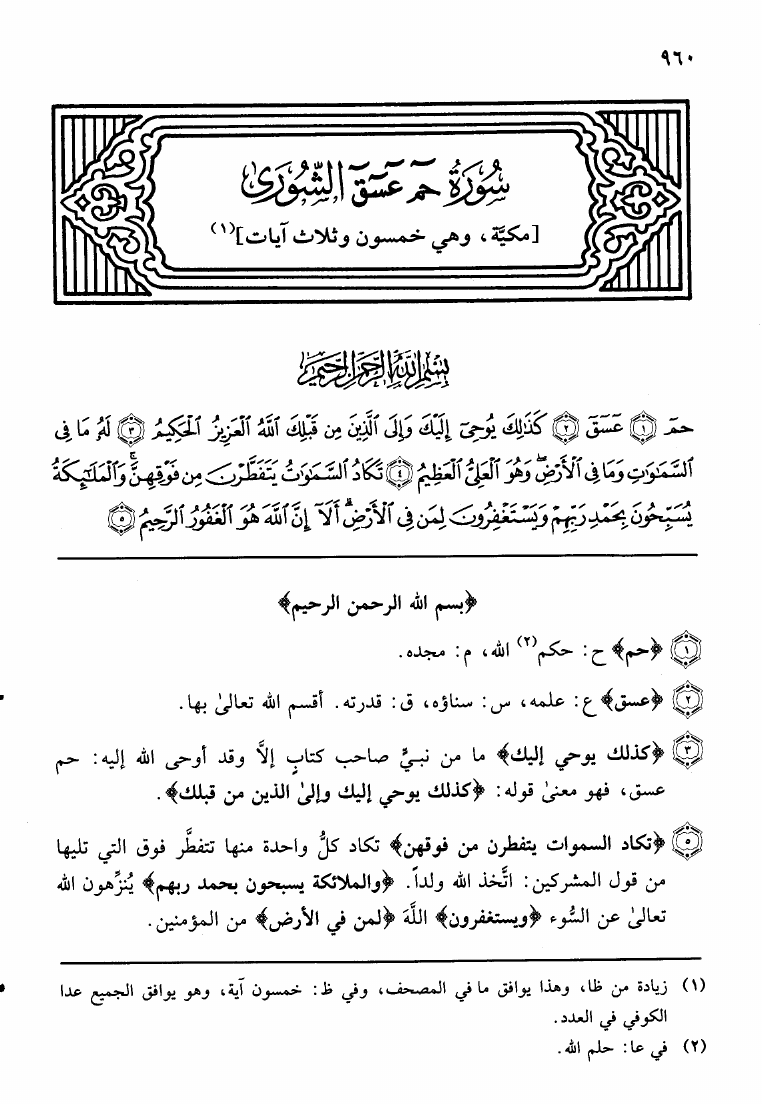 ٩٦٠
سُورَةُ حمٓ عٓسٓقٓ الشُّورَىٰ
[مكيَّة، وهي خمسون وثلاث آيات](١)
بِسْمِ اللَّهِ الرَّحْمَٰنِ الرَّحِيمِ
حمٓ ١ عٓسٓقٓ ٢ كَذَٰلِكَ يُوحِيٓ إِلَيْكَ وَإِلَى ٱلَّذِينَ مِن قَبْلِكَ ٱللَّهُ ٱلْعَزِيزُ ٱلْحَكِيمُ ٣ لَهُۥ مَا فِى
ٱلسَّمَٰوَٰتِ وَمَا فِى ٱلْأَرْضِۖ وَهُوَ ٱلْعَلِىُّ ٱلْعَظِيمُ ٤ تَكَادُ ٱلسَّمَٰوَٰتُ يَتَفَطَّرْنَ مِن فَوْقِهِنَّۚ وَٱلْمَلَٰٓئِكَةُ
يُسَبِّحُونَ بِحَمْدِ رَبِّهِمْ وَيَسْتَغْفِرُونَ لِمَن فِى ٱلْأَرْضِۗ أَلَآ إِنَّ ٱللَّهَ هُوَ ٱلْغَفُورُ ٱلرَّحِيمُ ٥
﴿بسم الله الرحمن الرحيم﴾
١ ﴿حم﴾ ح: حكم(٢) الله، م: مجده.
٢ ﴿عسق﴾ ع: علمه، س: سناؤه، ق: قدرته. أقسم الله تعالىٰ بها.
٣ ﴿كذلك يوحي إليك﴾ ما من نبيٍّ صاحب كتابٍ إلَّا وقد أوحى الله إليه: حم
عسق، فهو معنىٰ قوله: ﴿كذلك يوحي إليك وإلىٰ الذين من قبلك﴾.
٥ ﴿تكاد السموات يتفطرن من فوقهن﴾ تكاد كلُّ واحدة منها تتفطَّر فوق التي تليها
من قول المشركين: اتَّخذ الله ولداً. ﴿والملائكة يسبحون بحمد ربهم﴾ يُنزِّهون الله
تعالىٰ عن السُّوء ﴿ويستغفرون﴾ اللَّهَ ﴿لمن في الأرض﴾ من المؤمنين.
(١) زيادة من ظا، وهذا يوافق ما في المصحف، وفي ظ: خمسون آية، وهو يوافق الجميع عدا
الكوفي في العدد.
(٢) في عا: حلم الله.